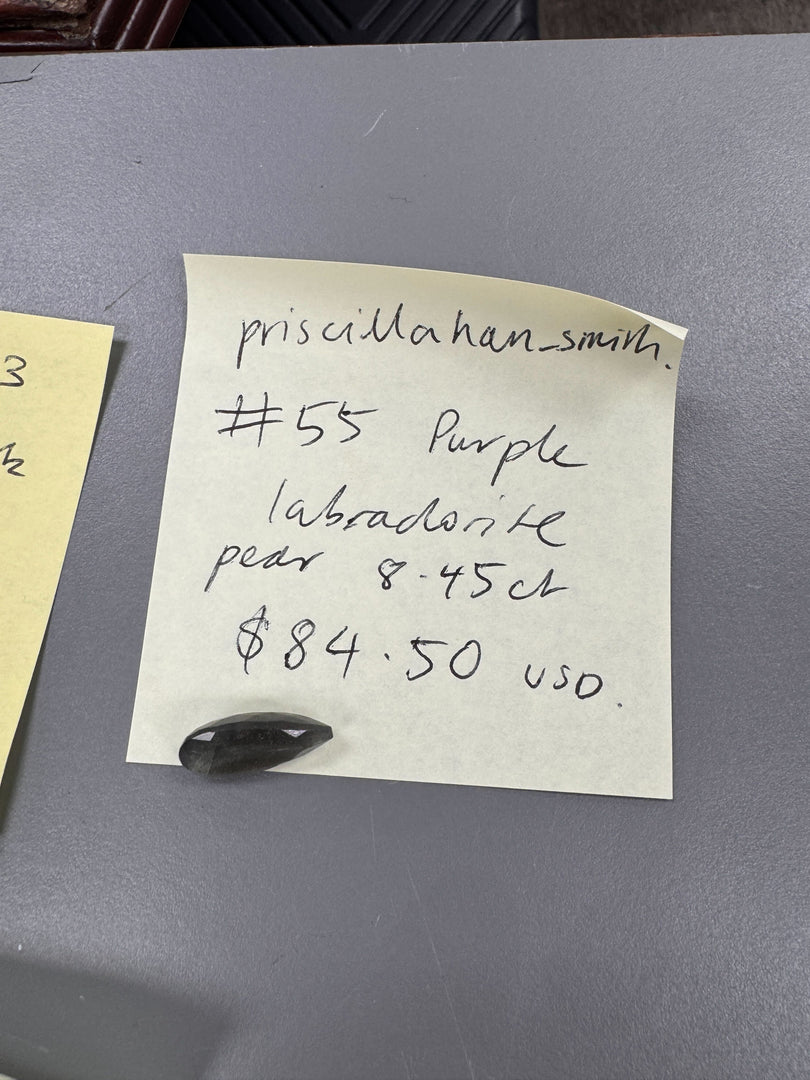 priscillahan_smith.
#55 Purple
labradorite
pear 8.45ct
$84.50 USD.
3